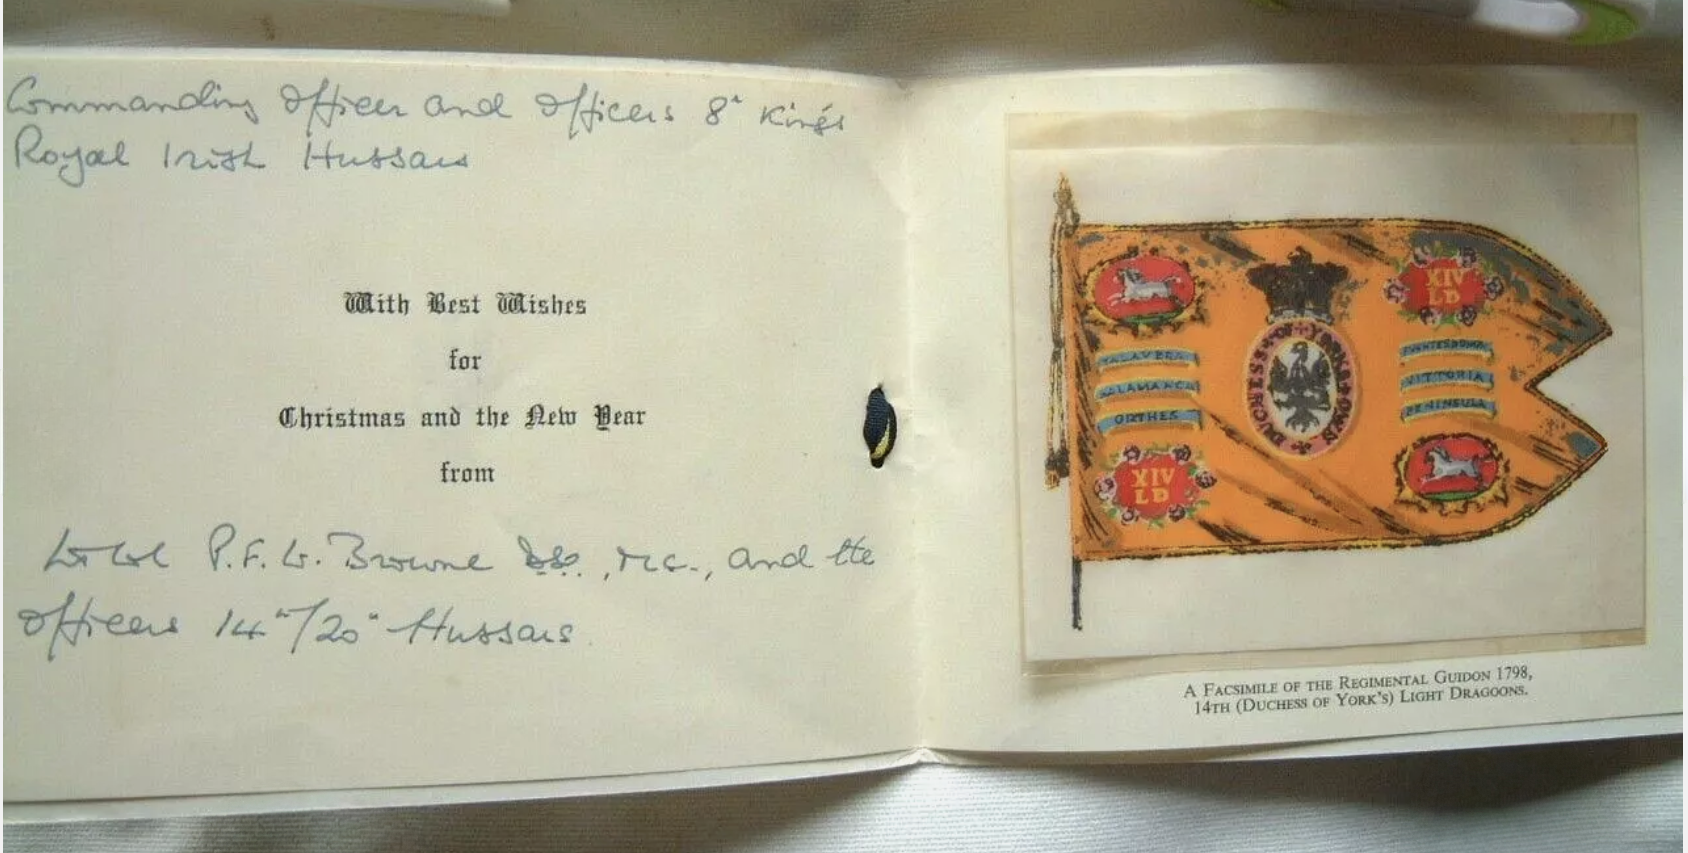 Commanding Officer and Officers 8" King's
Royal Irish Hussars
With Best Wishes
for
Christmas and the New Year
from
Lt Col P.F.W. Browne DSO., M.C., and the
Officers 14"/20" Hussars.
XIV
LD
TALAVERA
SALAMANCA
ORTHES
DUCHESS OF YORK'S OWN
VITTORIA
PENINSULA
XIV
LD
A FACSIMILE OF THE REGIMENTAL GUIDON 1798,
14TH (DUCHESS OF YORK'S) LIGHT DRAGOONS.